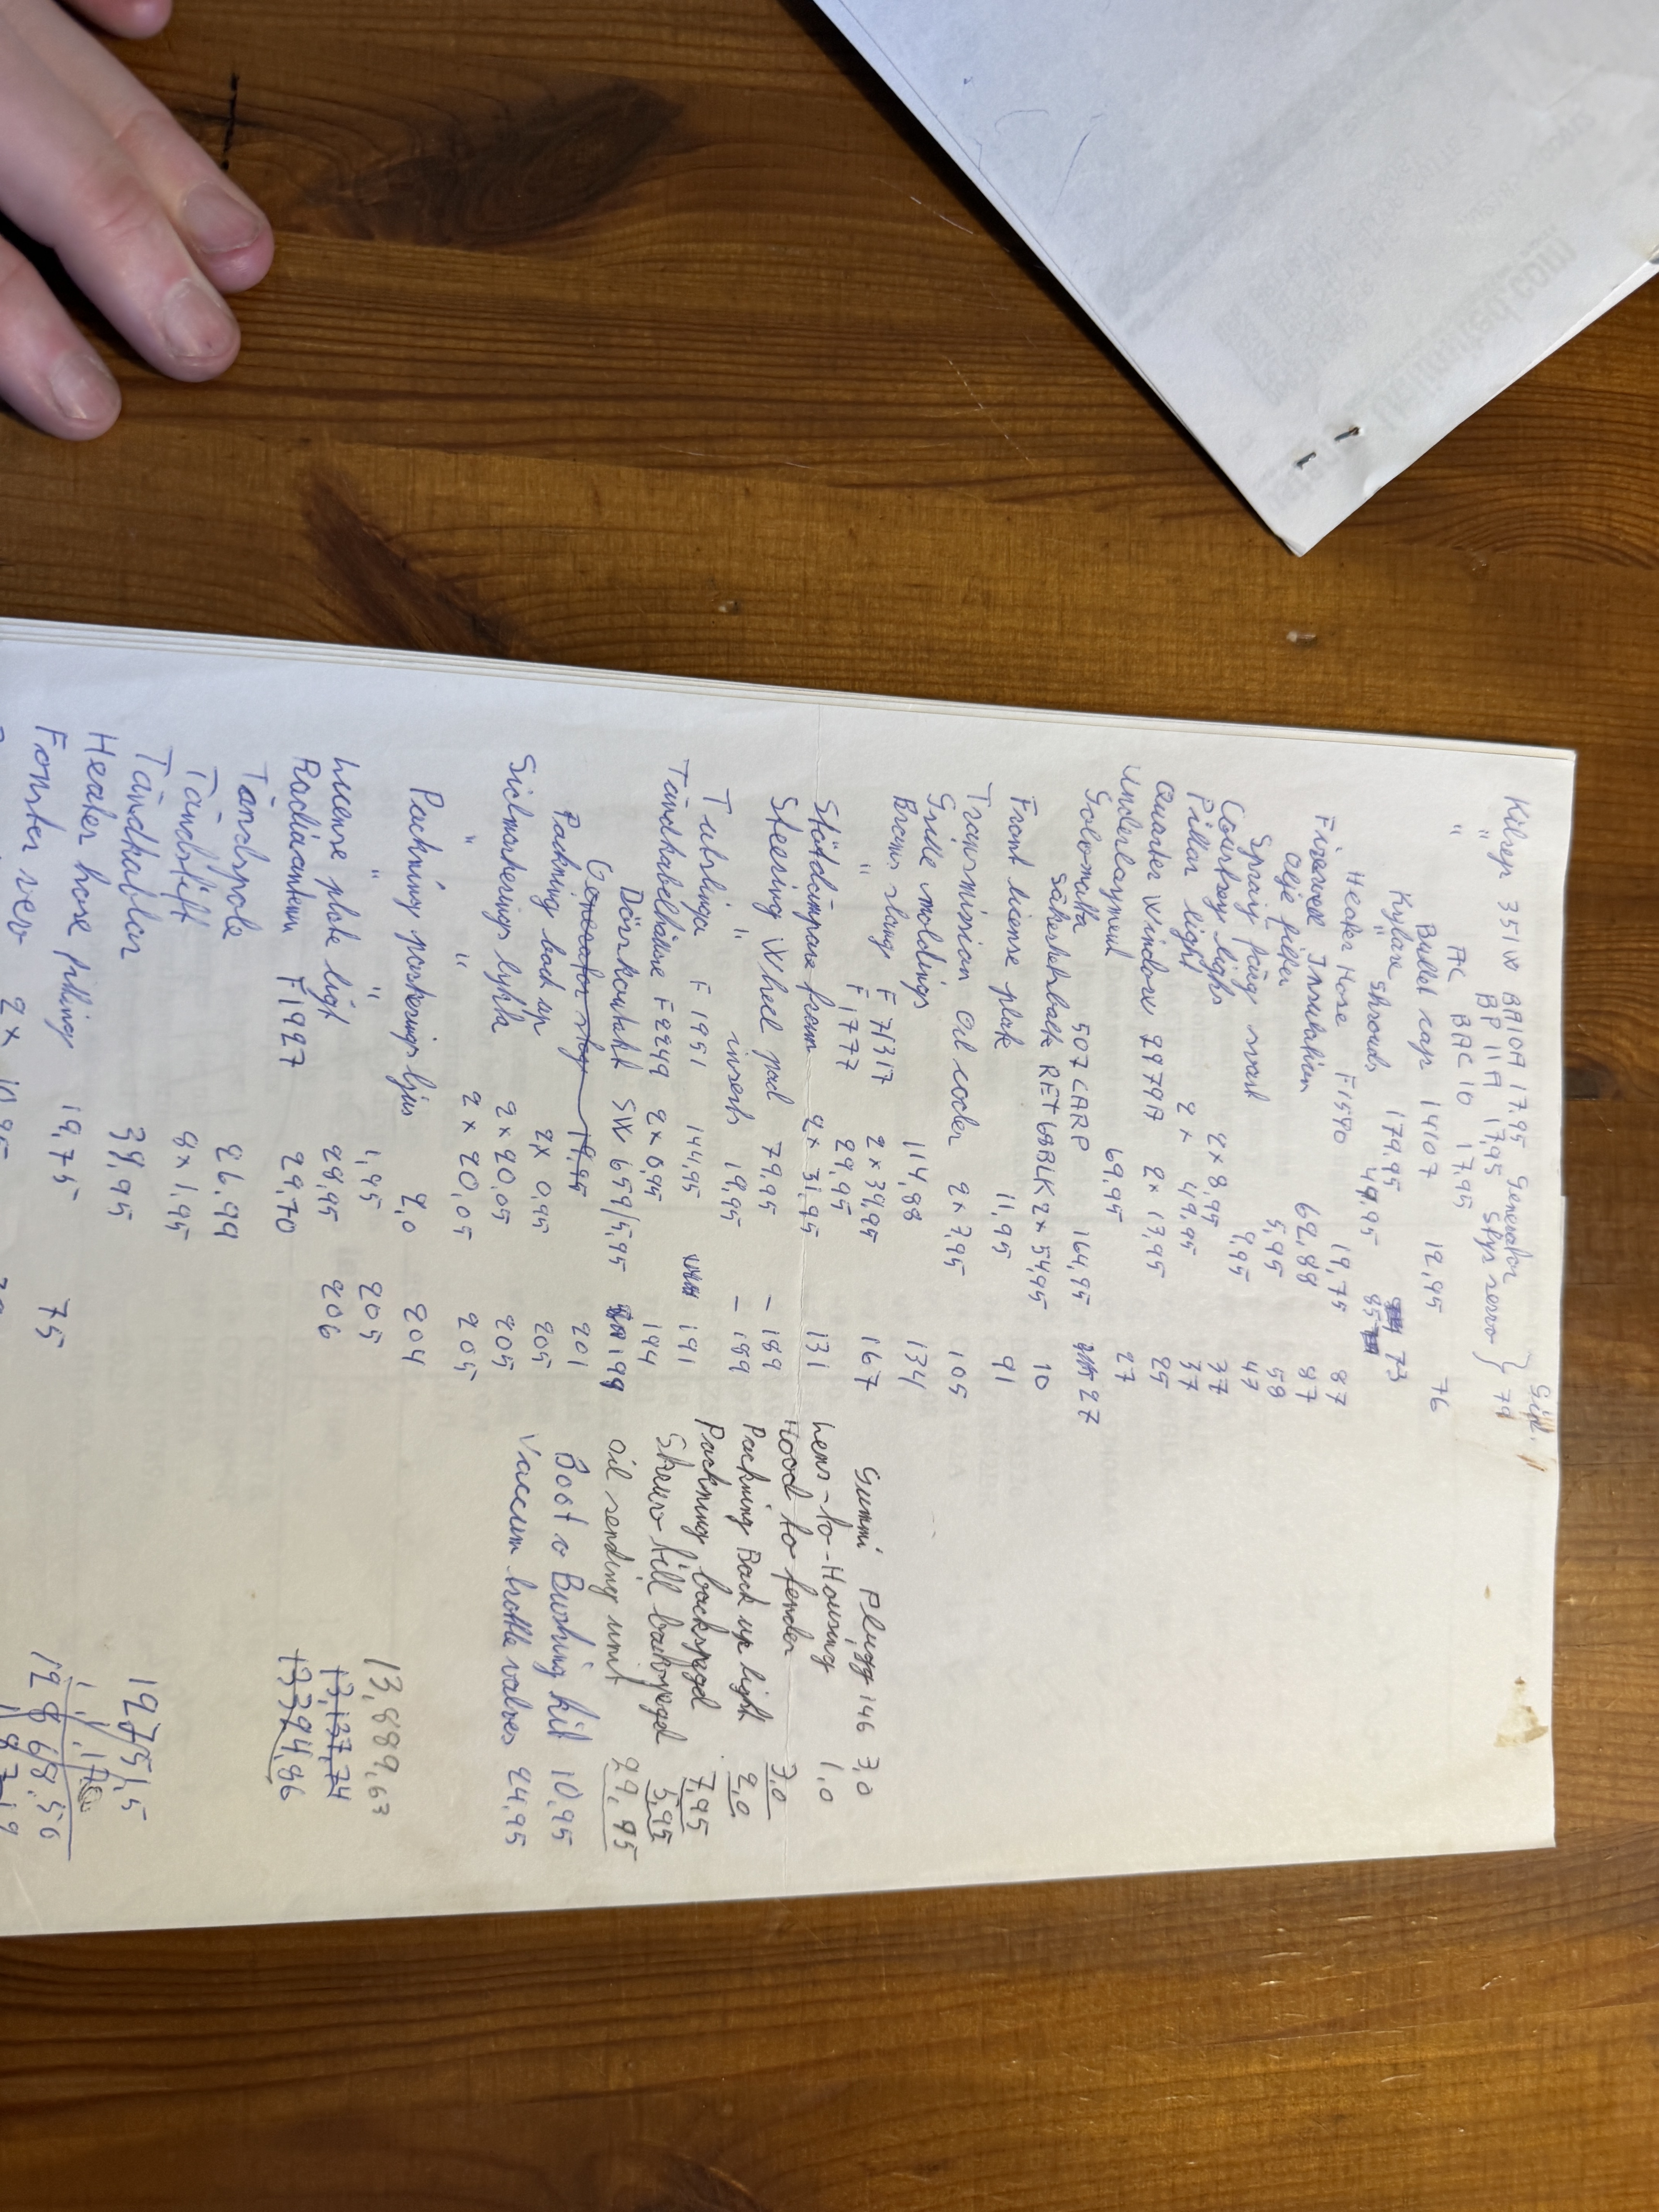 Sid.
Kilrep 351W BA10A 17.95 Generator
" BP 11A 17,95 Styr servo } 79
AC BAC 10 17,95
Bullet cap 1407 12,95 76
Kylare 179,95 73
" shrouds 49,95 85
Heater Hose F1590 19,75 87
Firewall Insulation 62,88 87
olje filter 5,95 59
Spray 9,95 47
Courtesy lights 2x8,95 37
Pillar light 2x 49,95 37
Quarter Window 7979A 2x 17,95 25
Underlayment 69,95 27
Golvmatta 507 CARP 164,95 27
säkerhetsbälte RET68BLK 2x 54,95 10
Front license plate 11,95 91
Transmission Oil cooler 2x7,95 105
Grille moldings 114,88 134
Broms slang F 71317 2x39,95 167
" F 1777 29,95
Stötdämpare fram 2x 31,95 131
Steering Wheel pad 79,95 – 189
" insert 19,95 – 189
Tutslinga F 1951 144,95 191
Tändkabelhållare F2249 2x 6,95 194
Dörrkontakt SW 659/5,95 199
Generator stag 19,95 201
Packning back up 2x 0,95 205
Sidmarkerings lykta 2x20,05 205
" " 2x20,05 205
Packning parkerings ljus 2,0 204
" " 1,95 205
license plate light 28,95 206
Radioantenn F1927 29,70
Tändspole 26,99
Tändstift 8x1,95
Tändkablar 39,95
Heater hose fittings 19,75 75
Gummi Plugg 146 3,0
Lens-to-Housing 1,0
Hood to fender 3,0
Packning Back up light 2,0
Packning backspegel 7,95
Skruv till backspegel 5,95
oil sending unit 29,95
Boot o Bushing kit 10,95
Vaccum trottle valves 24,95
13,889,63
13,137,74
13394,86
19751,5